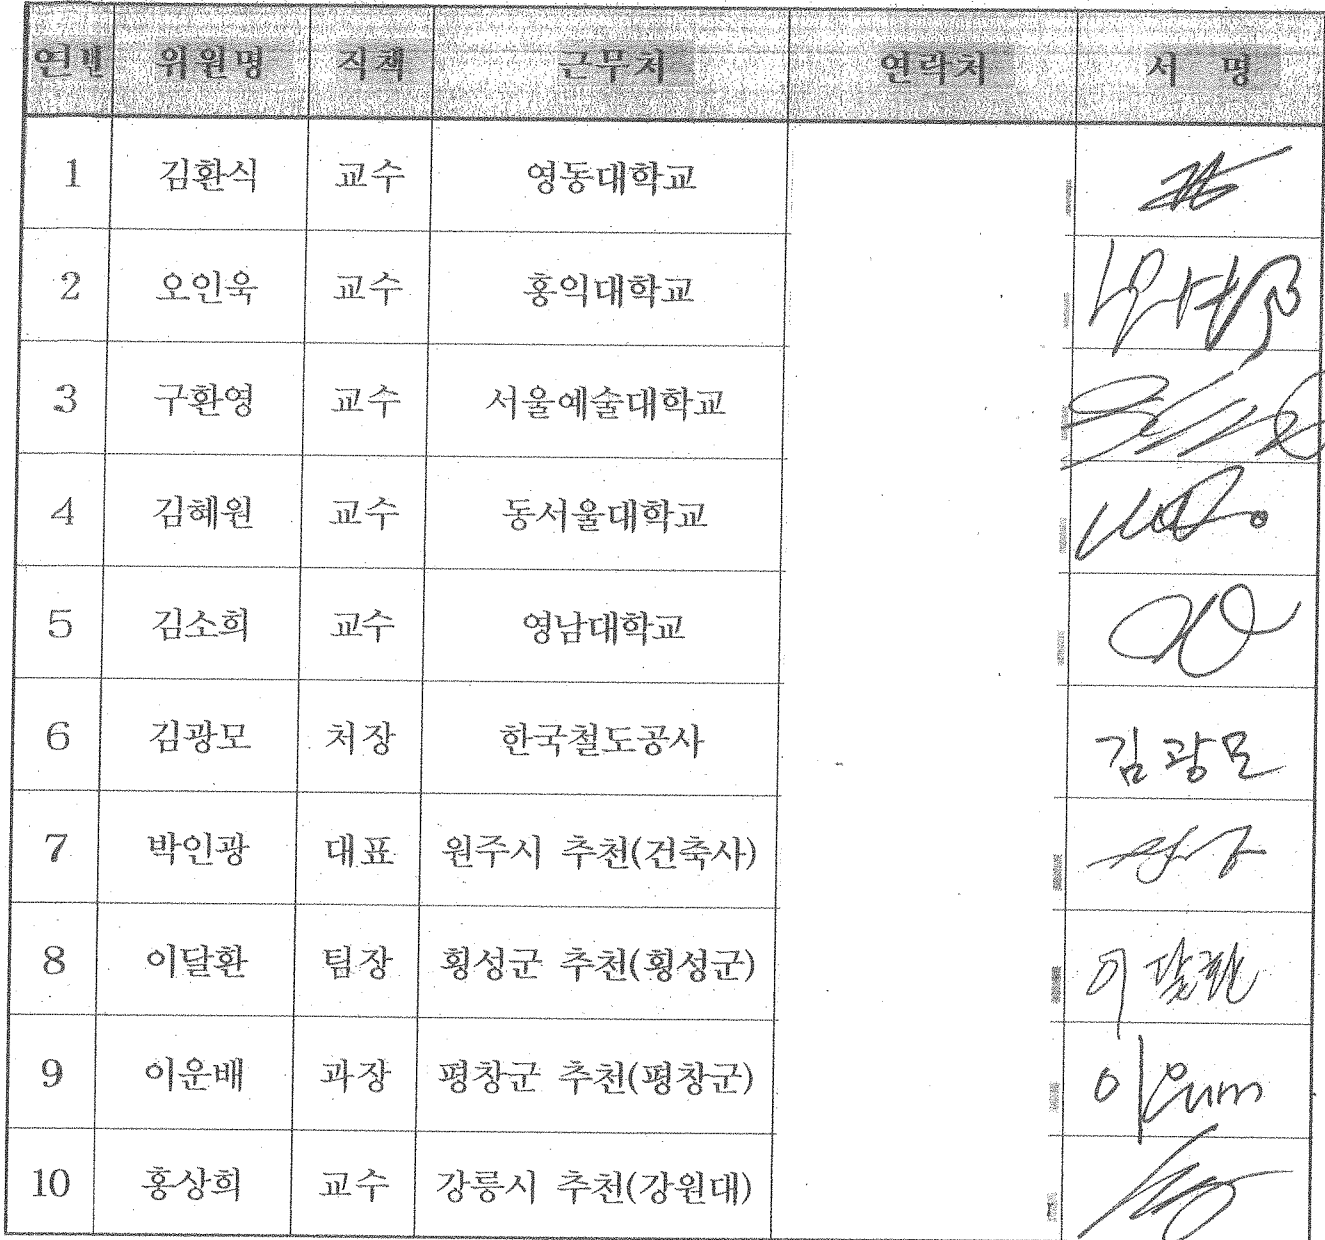 연번 위원명 직책 근무처 연락처 서 명
1 김환식 교수 영동대학교
2 오인욱 교수 홍익대학교
3 구환영 교수 서울예술대학교
4 김혜원 교수 동서울대학교
5 김소희 교수 영남대학교
6 김광모 처장 한국철도공사 김광모
7 박인광 대표 원주시 추천(건축사)
8 이달환 팀장 횡성군 추천(횡성군) 이달환
9 이운배 과장 평창군 추천(평창군)
10 홍상희 교수 강릉시 추천(강원대)